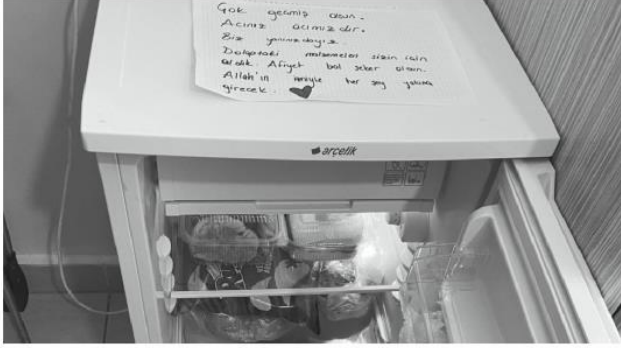 Çok geçmiş olsun.
Acınız acımızdır.
Biz yanınızdayız.
Dolaptaki malzemeleri sizin için
aldık. Afiyet bal şeker olsun.
Allah'ın izniyle her şey yoluna
girecek.
arçelik